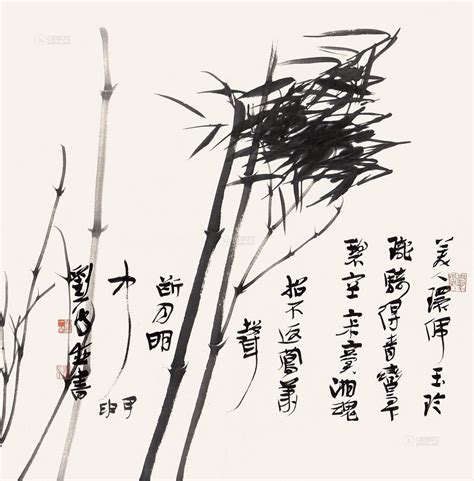 美人環佩玉玲
瓏騎得青鸞下
碧空寂寞湘魂
招不返鳳簫
聲
斷月明
中
甲申
劉 書